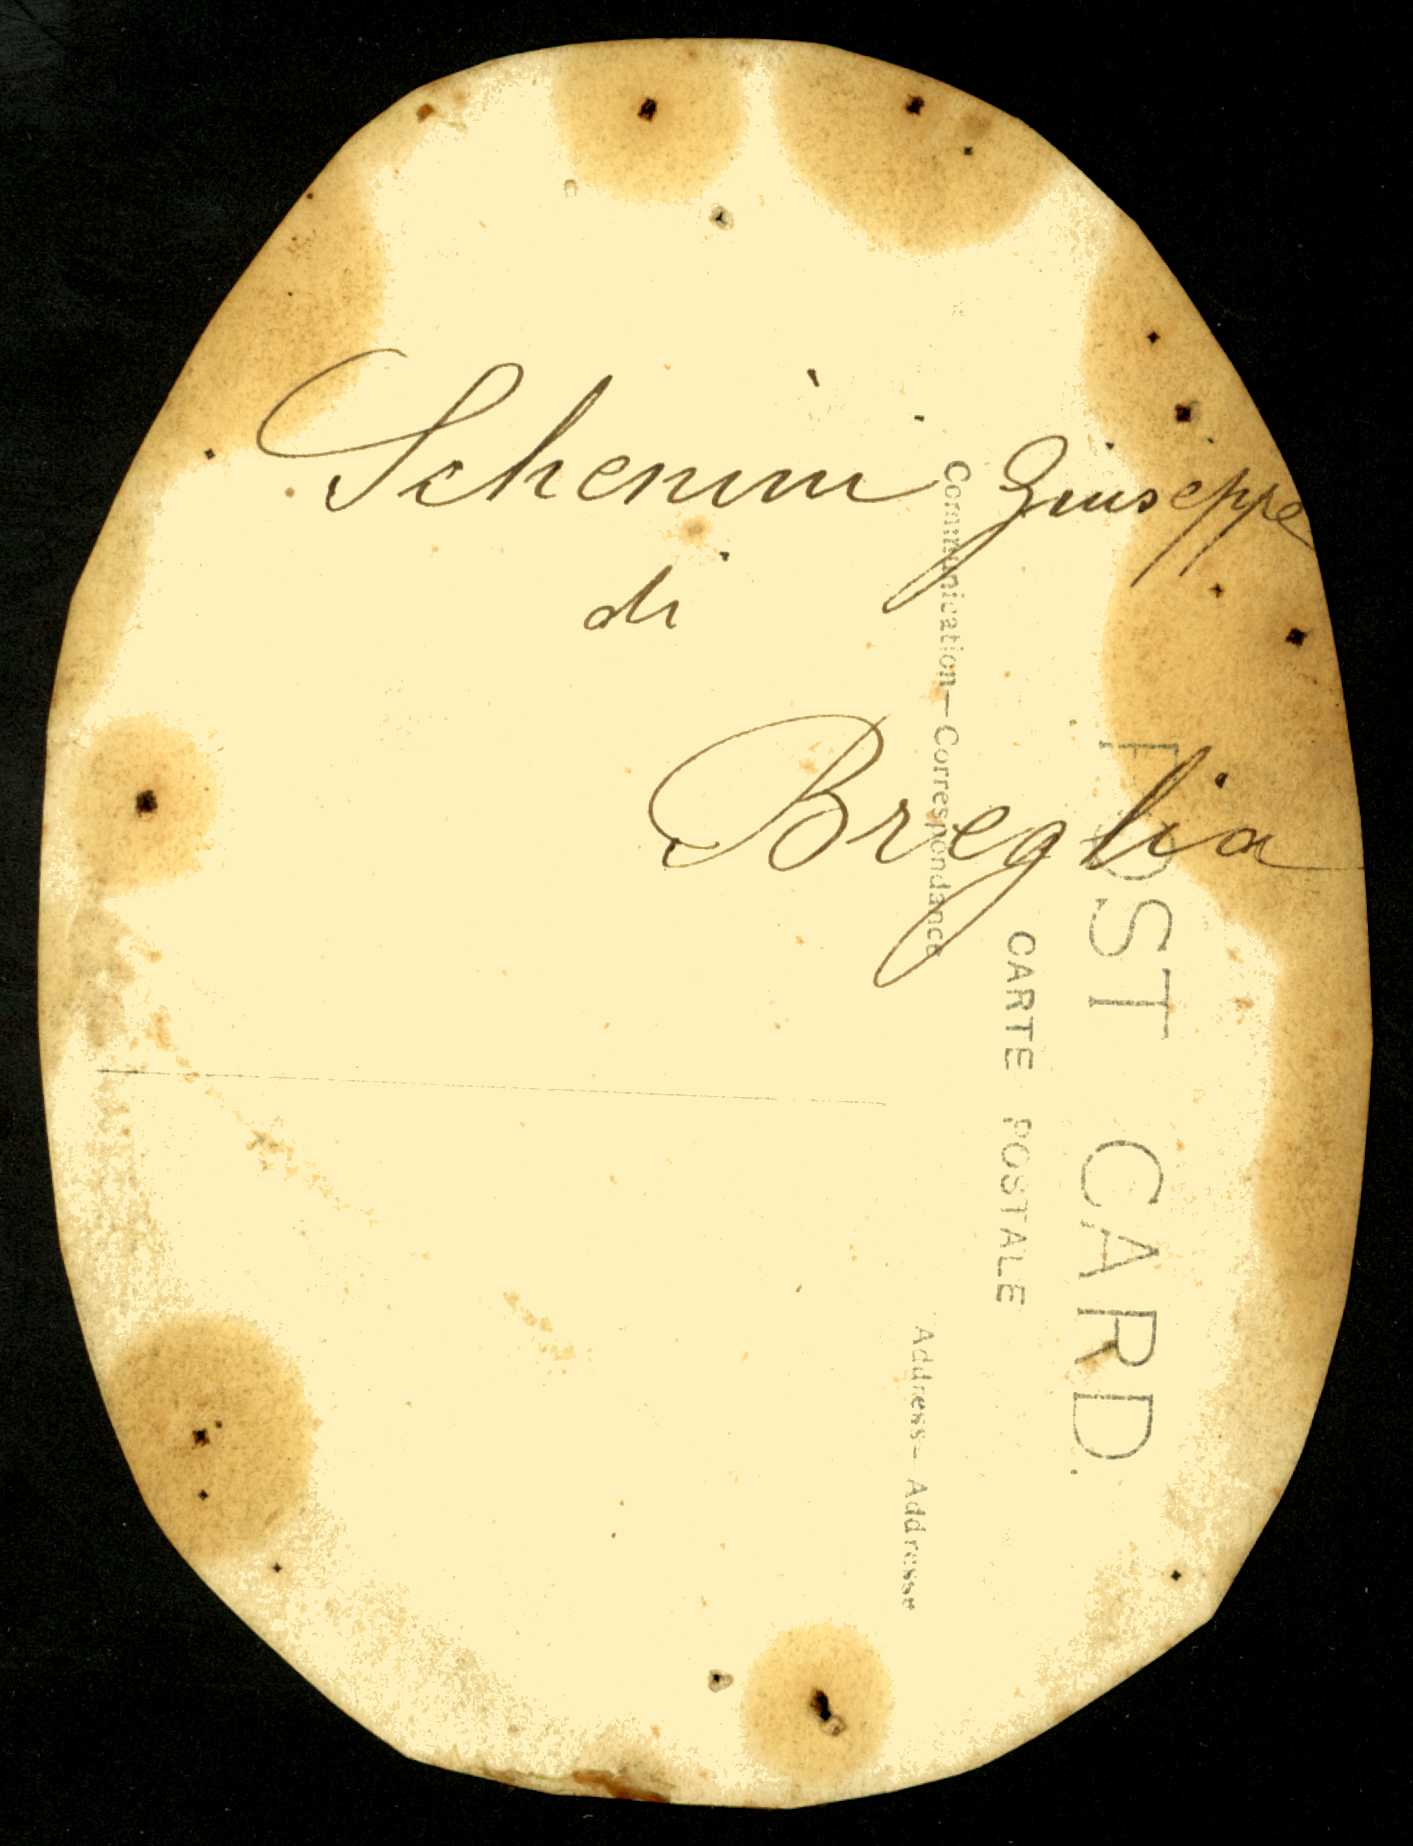 Schenini Giuseppe
di
Breglia
POST CARD.
CARTE POSTALE
Communication—Correspondance
Address—Addresse